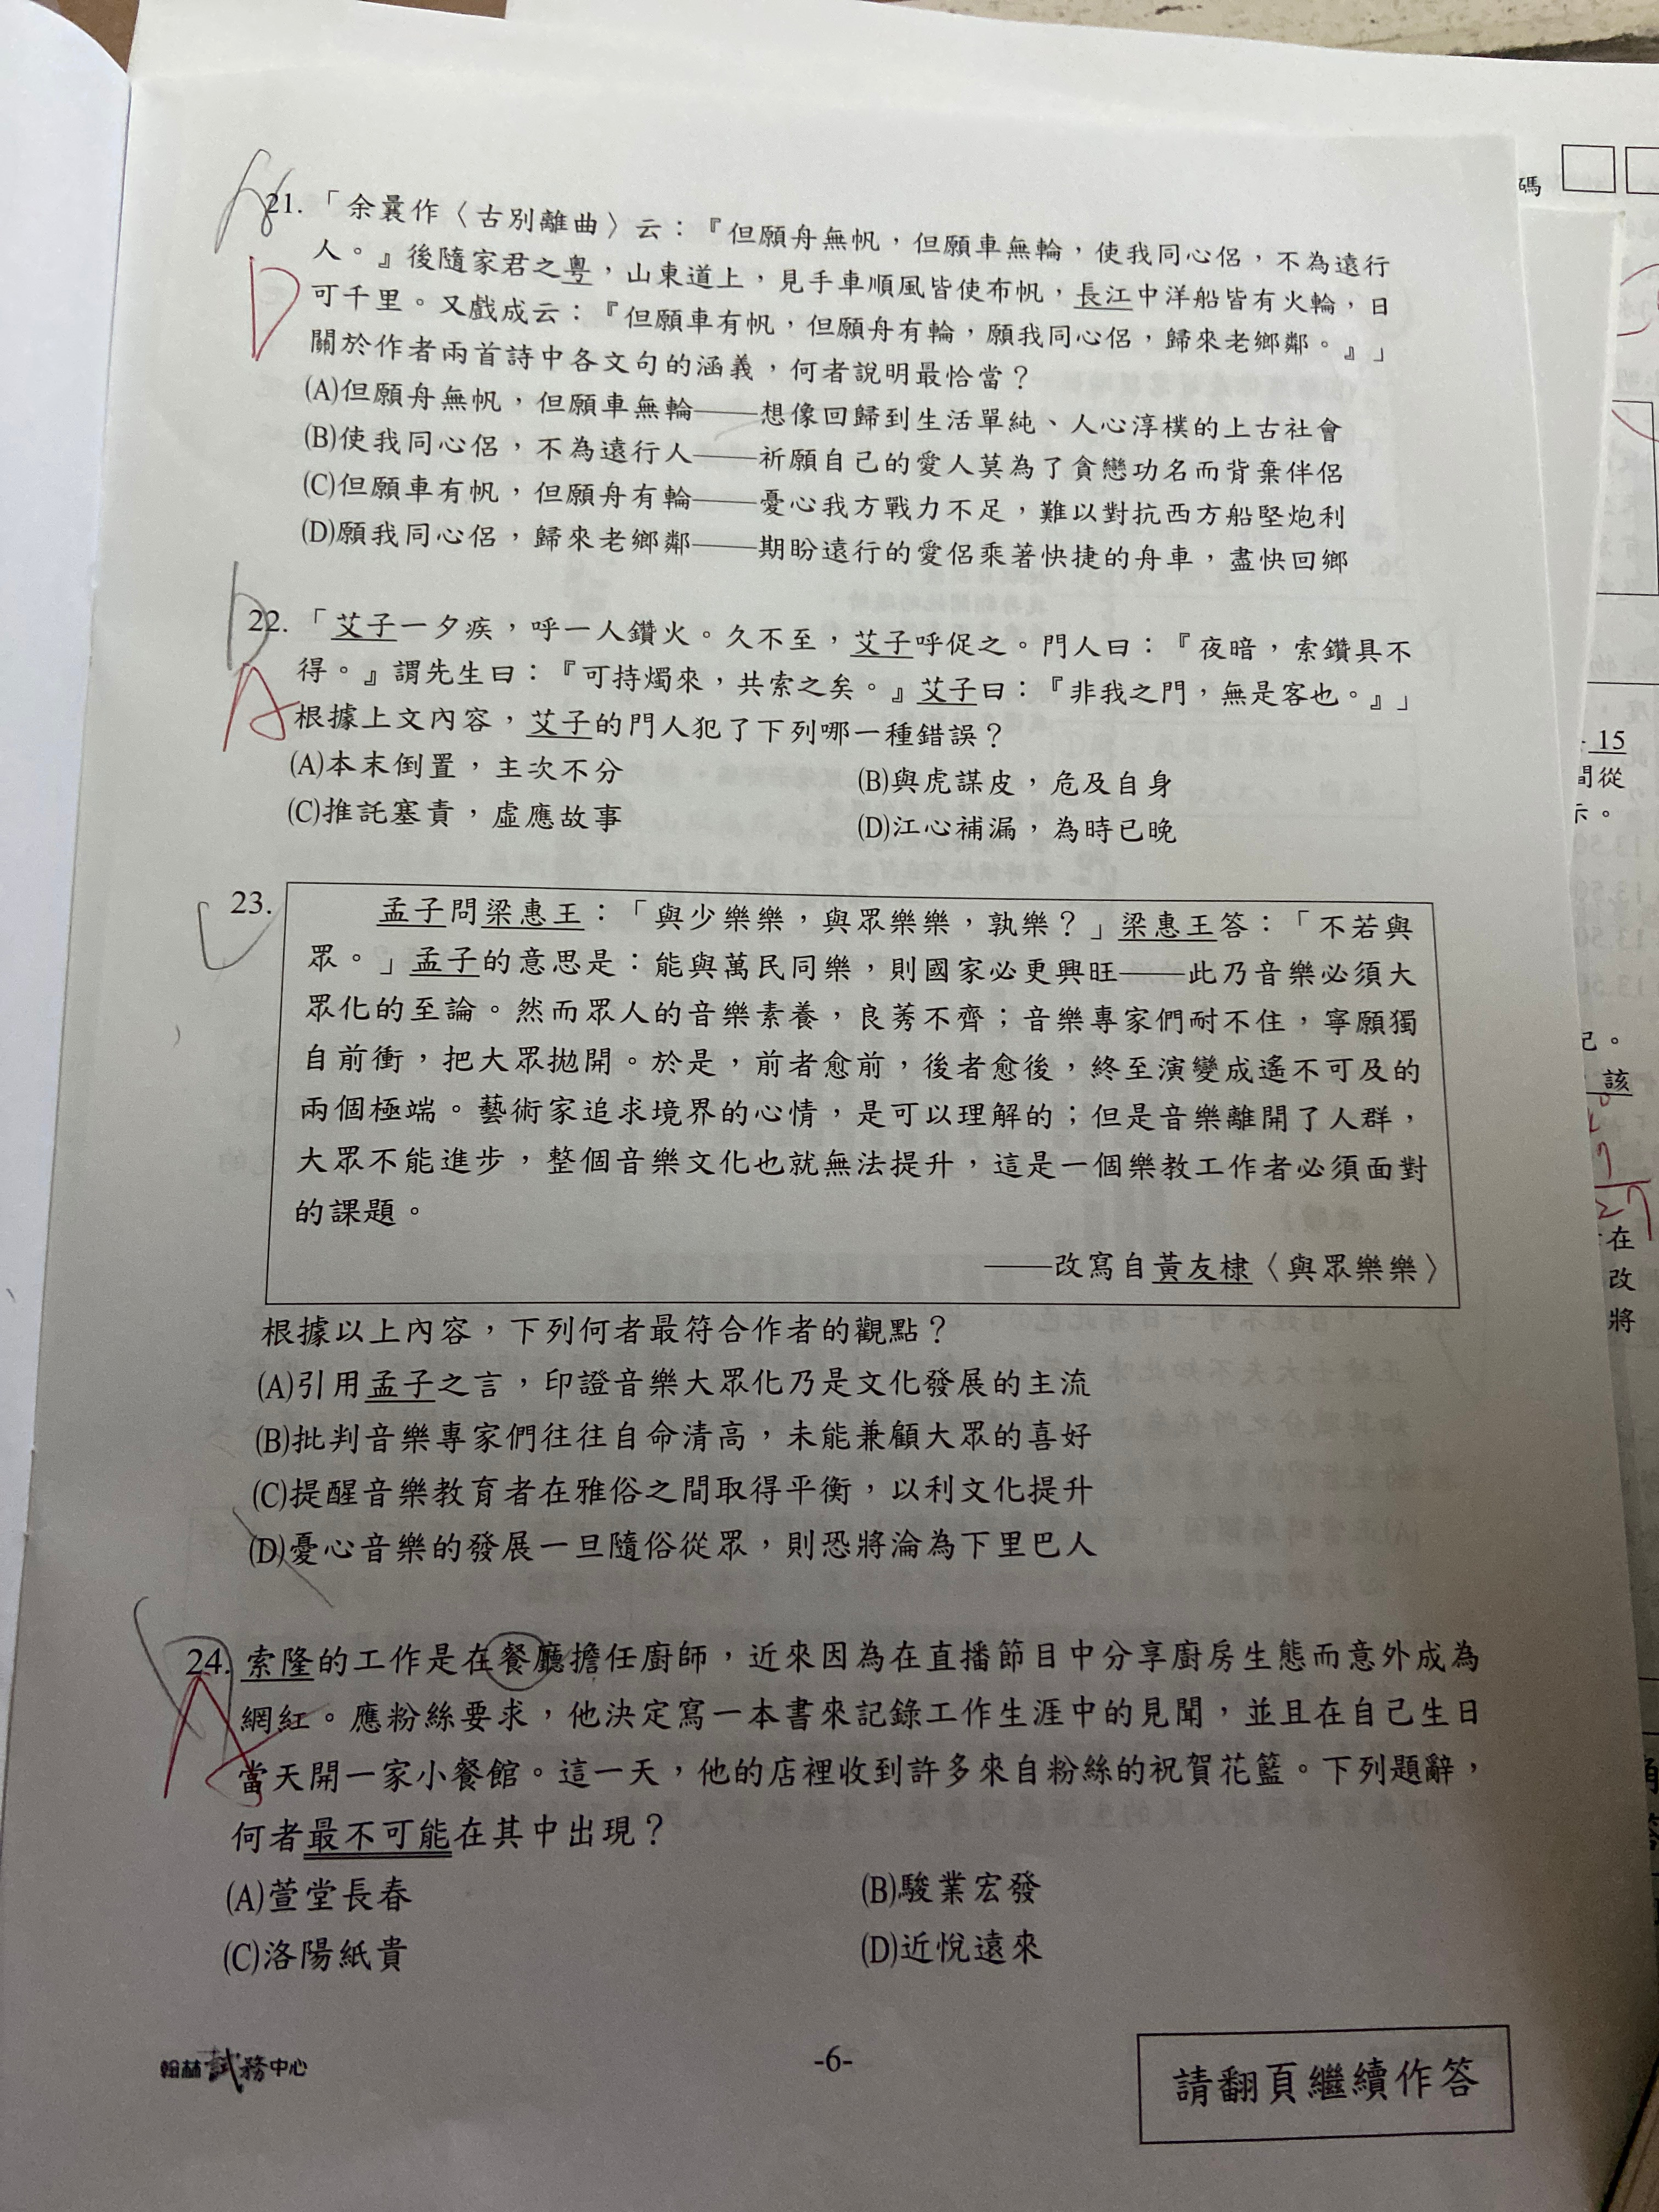 21. 「余曩作〈古別離曲〉云：『但願舟無帆，但願車無輪，使我同心侶，不為遠行
人。』後隨家君之粵，山東道上，見手車順風皆使布帆，長江中洋船皆有火輪，日
可千里。又戲成云：『但願車有帆，但願舟有輪，願我同心侶，歸來老鄉鄰。』」
關於作者兩首詩中各文句的涵義，何者說明最恰當？
(A)但願舟無帆，但願車無輪——想像回歸到生活單純、人心淳樸的上古社會
(B)使我同心侶，不為遠行人——祈願自己的愛人莫為了貪戀功名而背棄伴侶
(C)但願車有帆，但願舟有輪——憂心我方戰力不足，難以對抗西方船堅炮利
(D)願我同心侶，歸來老鄉鄰——期盼遠行的愛侶乘著快捷的舟車，盡快回鄉
D
22. 「艾子一夕疾，呼一人鑽火。久不至，艾子呼促之。門人曰：『夜暗，索鑽具不
得。』謂先生曰：『可持燭來，共索之矣。』艾子曰：『非我之門，無是客也。』」
根據上文內容，艾子的門人犯了下列哪一種錯誤？
(A)本末倒置，主次不分
(B)與虎謀皮，危及自身
(C)推託塞責，虛應故事
(D)江心補漏，為時已晚
A
23.
孟子問梁惠王：「與少樂樂，與眾樂樂，孰樂？」梁惠王答：「不若與
眾。」孟子的意思是：能與萬民同樂，則國家必更興旺——此乃音樂必須大
眾化的至論。然而眾人的音樂素養，良莠不齊；音樂專家們耐不住，寧願獨
自前衝，把大眾拋開。於是，前者愈前，後者愈後，終至演變成遙不可及的
兩個極端。藝術家追求境界的心情，是可以理解的；但是音樂離開了人群，
大眾不能進步，整個音樂文化也就無法提升，這是一個樂教工作者必須面對
的課題。
——改寫自黃友棣〈與眾樂樂〉
根據以上內容，下列何者最符合作者的觀點？
(A)引用孟子之言，印證音樂大眾化乃是文化發展的主流
(B)批判音樂專家們往往自命清高，未能兼顧大眾的喜好
(C)提醒音樂教育者在雅俗之間取得平衡，以利文化提升
(D)憂心音樂的發展一旦隨俗從眾，則恐將淪為下里巴人
24. 索隆的工作是在餐廳擔任廚師，近來因為在直播節目中分享廚房生態而意外成為
網紅。應粉絲要求，他決定寫一本書來記錄工作生涯中的見聞，並且在自己生日
當天開一家小餐館。這一天，他的店裡收到許多來自粉絲的祝賀花籃。下列題辭，
何者最不可能在其中出現？
(A)萱堂長春
(B)駿業宏發
(C)洛陽紙貴
(D)近悅遠來
A
翰林試務中心
-6-
請翻頁繼續作答
碼
15
間從
示。
13.50
13.50
13.50
記。
該
在
改
將